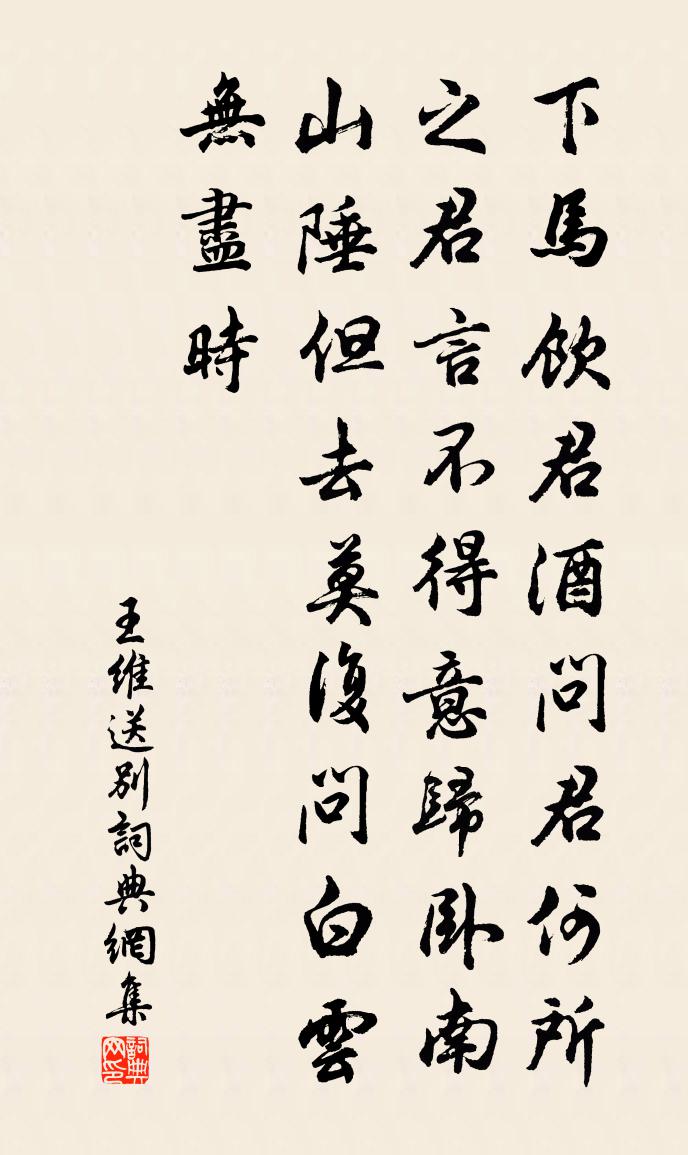 下馬飲君酒問君何所
之君言不得意歸臥南
山陲但去莫復問白雲
無盡時
王維送別詞典網集
詞典网印